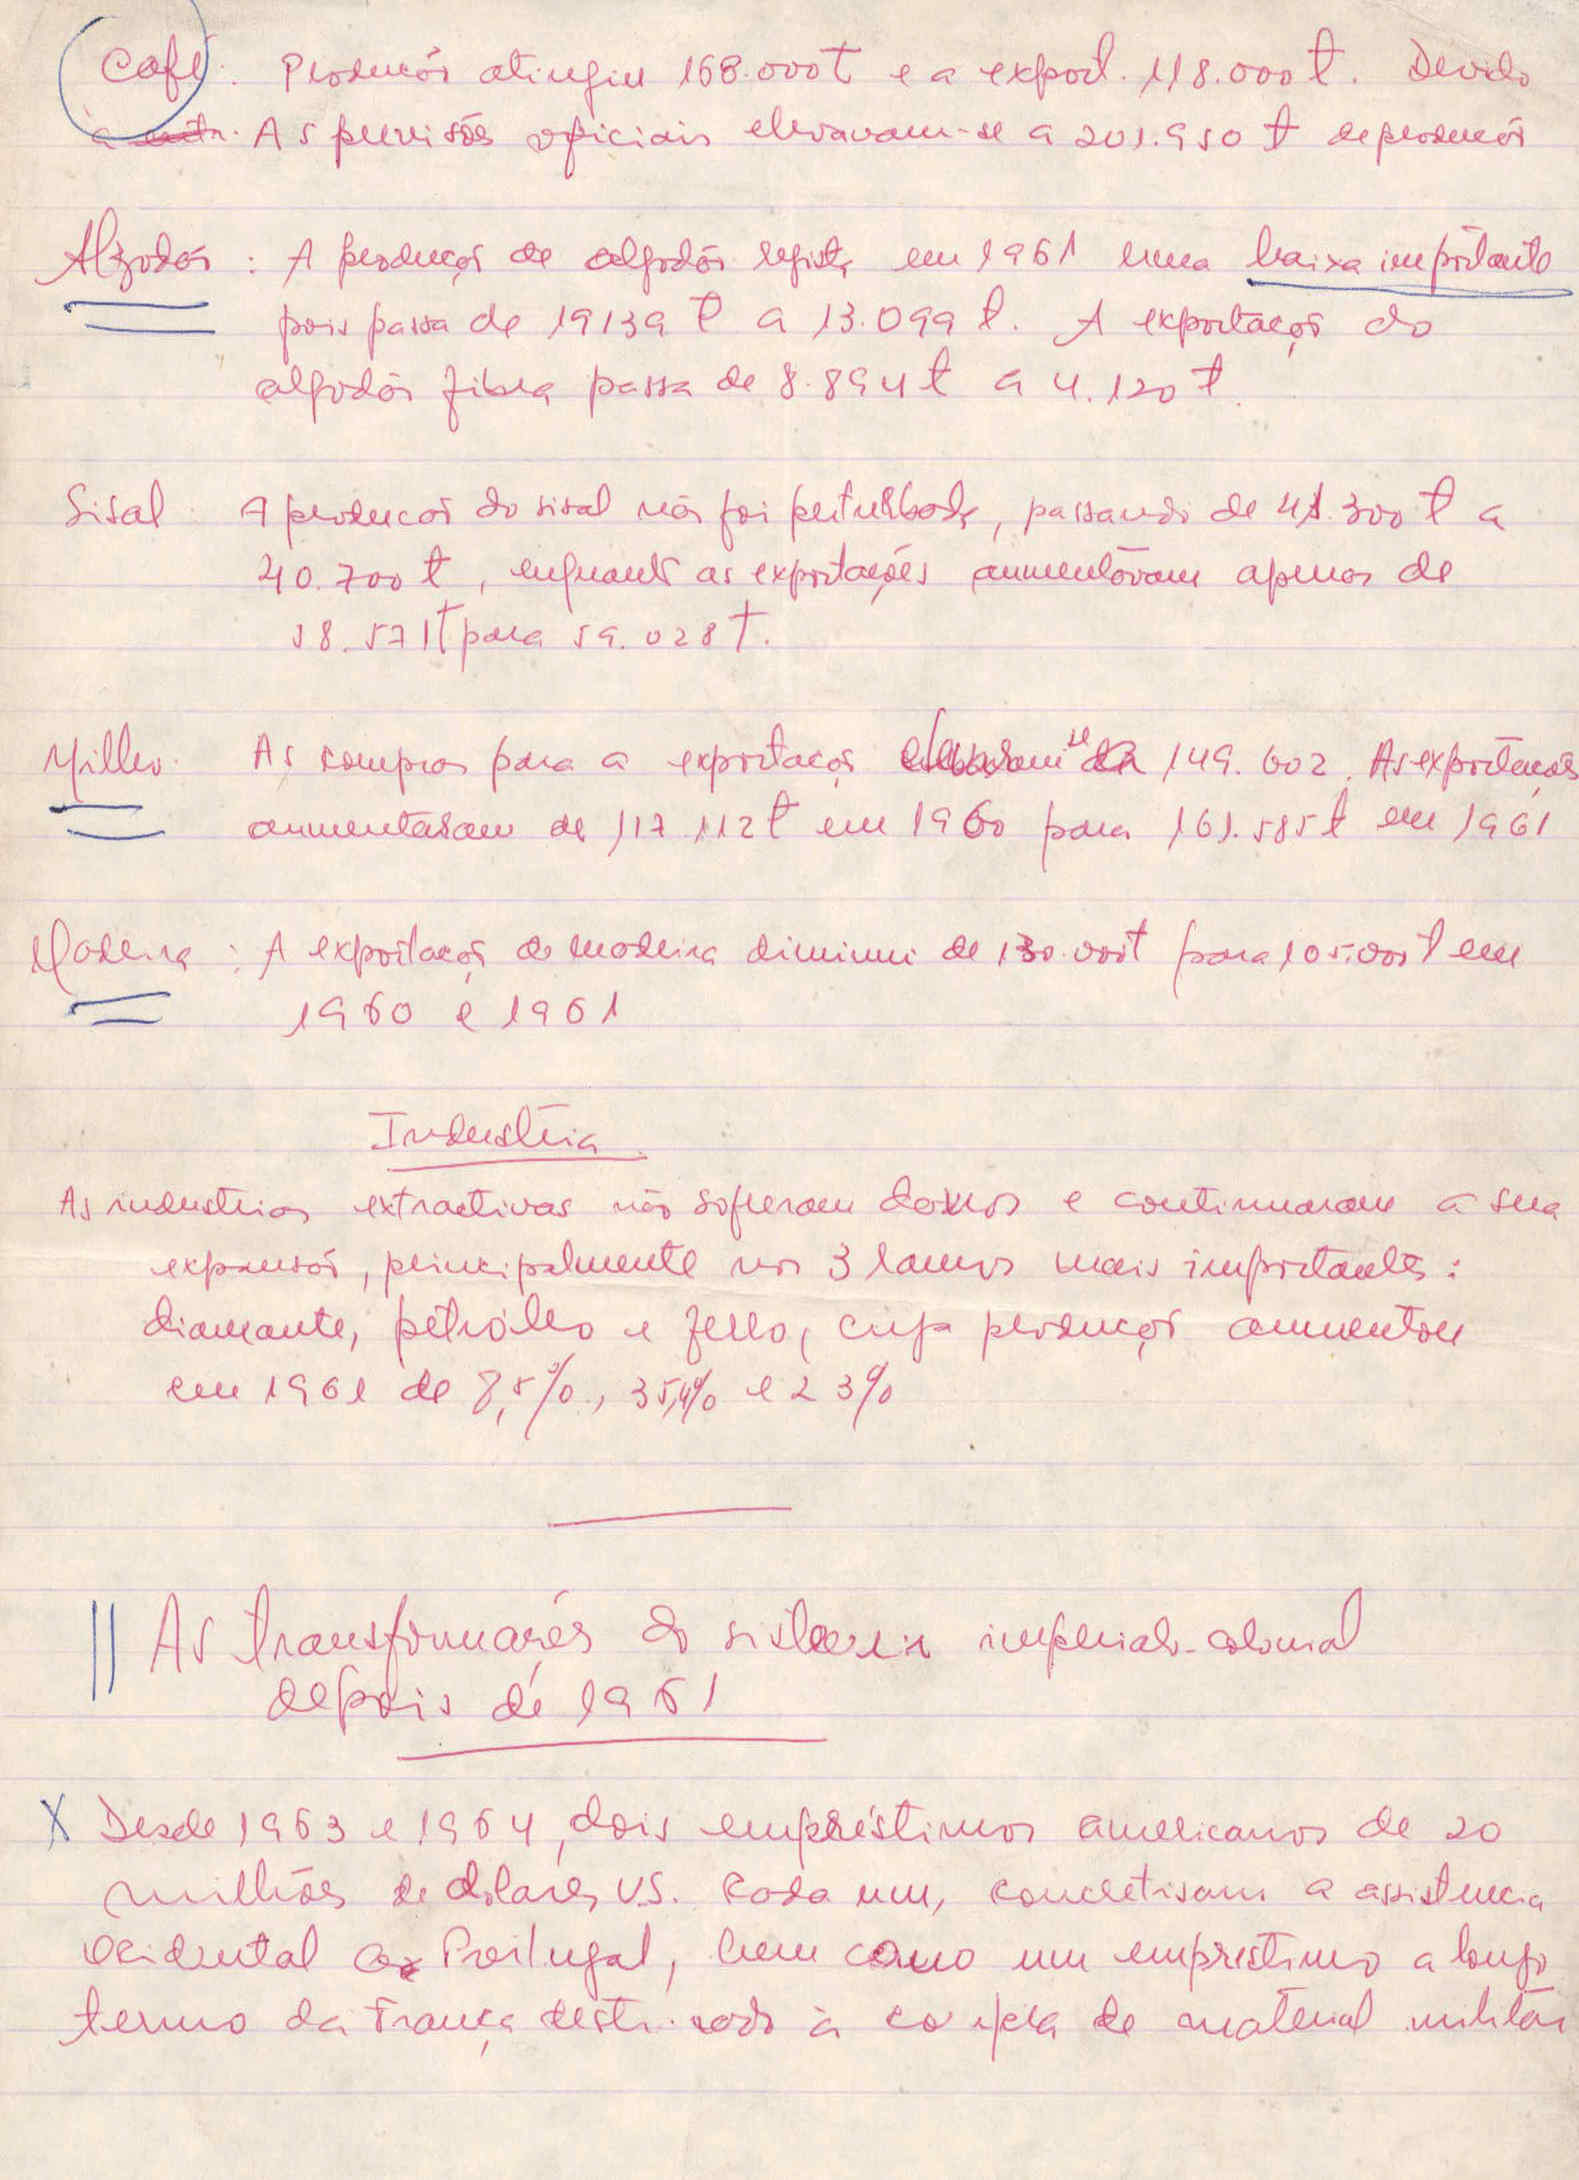 Café: Producão atingiu 168.000t e a export. 118.000t. Devido
à As previsões oficiais elevavam-se a 201.950t de producão
Algodão : A produção de algodão regista em 1961 uma baixa importante
pois passa de 19139t a 13.099t. A exportação do
algodão fibra passa de 8.894t a 4.120t.
Sisal A producão do sisal não foi perturbada, passando de 41.300t a
40.700t, enquanto as exportações aumentaram apenas de
58.571t para 59.028t.
Milho. As compras para a exportação elevaram se a 149.602. As exportações
aumentaram de 117.112t em 1960 para 161.585t em 1961
Madeira : A exportação de madeira diminui de 130.000t para 105.000t em
1960 e 1961
Industria
As industrias extractivas não sofreram danos e continuaram a sua
expansão, principalmente nos 3 ramos mais importantes:
diamante, petróleo e ferro, cuja produção aumentou
em 1961 de 8,5%, 35,4% e 23%
As transformações do sistema imperialo-colonial
depois de 1961
X Desde 1963 e 1964, dois empréstimos americanos de 20
milhões de dolares U.S. cada um, concretisam a assistencia
ocidental a Portugal, bem como um emprestimo a longo
termo da França destinado à compra de material militar